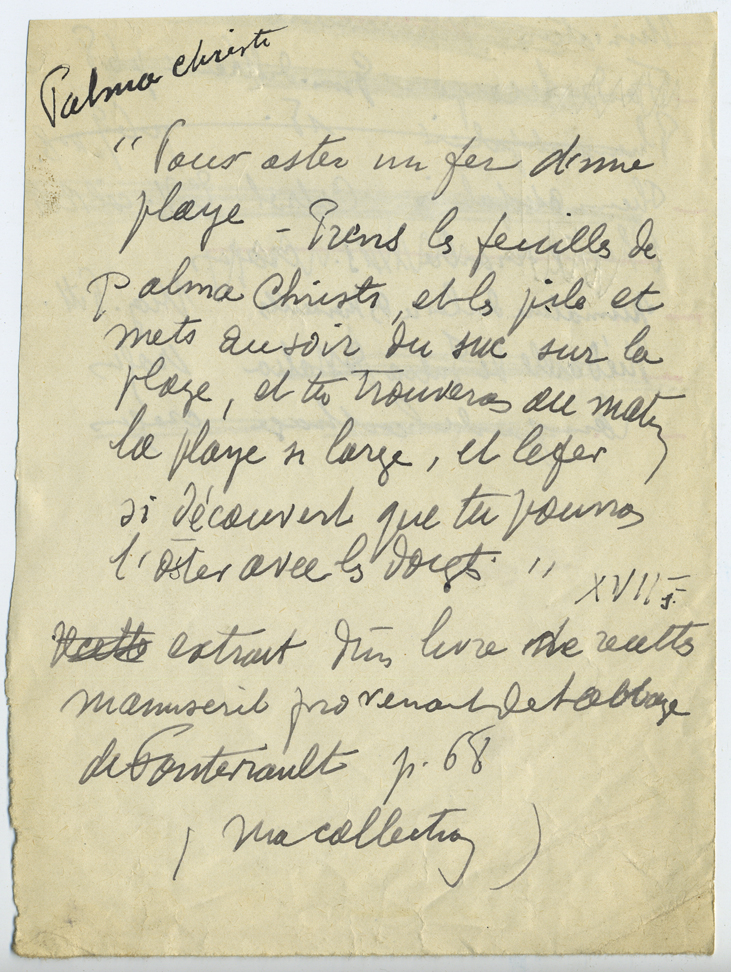 Palma Christi
" Pour oster un fer d'une
playe - Prens les feuilles de
Palma Christi, et les pile et
mets au soir du suc sur la
playe, et tu trouveras au matin
la playe si large, et le fer
si découvert que tu pourras
l'ôster avec les doigts "
XVII s.
extrait d'un livre de recettes
manuscrit provenant de l'abbaye
de Fontevrault p. 68
( Ma collection )